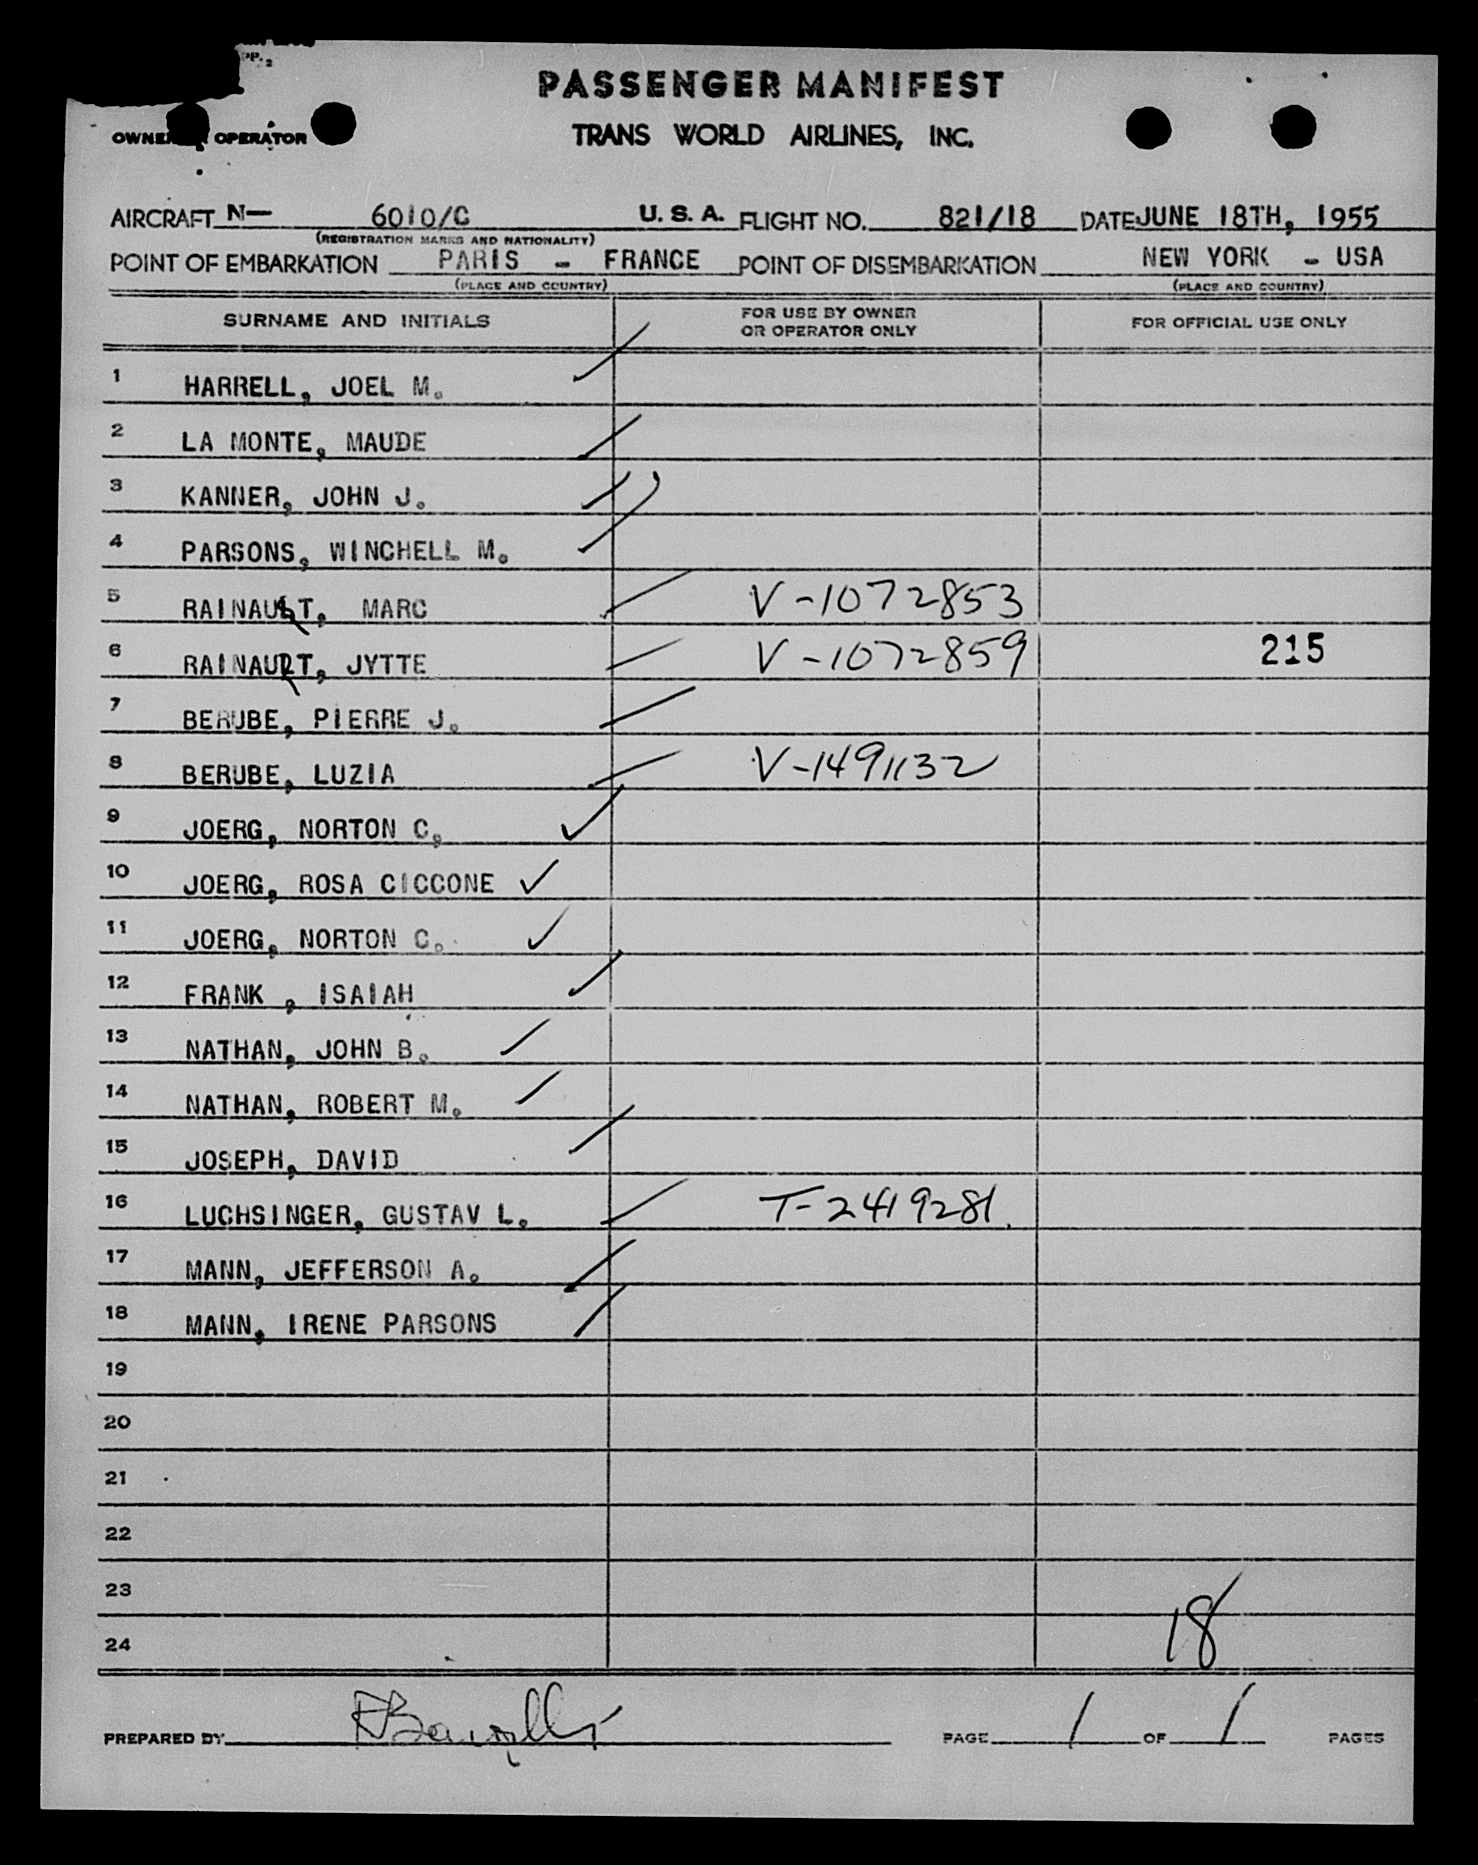 PP. 2
PASSENGER MANIFEST
OWNER OPERATOR
TRANS WORLD AIRLINES, INC.
AIRCRAFT N— 6010/C U. S. A. FLIGHT NO. 821/18 DATE JUNE 18TH, 1955
(REGISTRATION MARKS AND NATIONALITY)
POINT OF EMBARKATION PARIS - FRANCE POINT OF DISEMBARKATION NEW YORK - USA
(PLACE AND COUNTRY) (PLACE AND COUNTRY)
SURNAME AND INITIALS FOR USE BY OWNER OR OPERATOR ONLY FOR OFFICIAL USE ONLY
1 HARRELL, JOEL M.
2 LA MONTE, MAUDE
3 KANNER, JOHN J.
4 PARSONS, WINCHELL M.
5 RAINAUT, MARC V-1072853
6 RAINAUT, JYTTE V-1072859 215
7 BERUBE, PIERRE J.
8 BERUBE, LUZIA V-1491132
9 JOERG, NORTON C,
10 JOERG, ROSA CICCONE
11 JOERG, NORTON C.
12 FRANK , ISAIAH
13 NATHAN, JOHN B.
14 NATHAN, ROBERT M.
15 JOSEPH, DAVID
16 LUCHSINGER, GUSTAV L. T-2419281
17 MANN, JEFFERSON A.
18 MANN, IRENE PARSONS
19
20
21
22
23
24
18
PREPARED BY PAGE 1 OF 1 PAGES